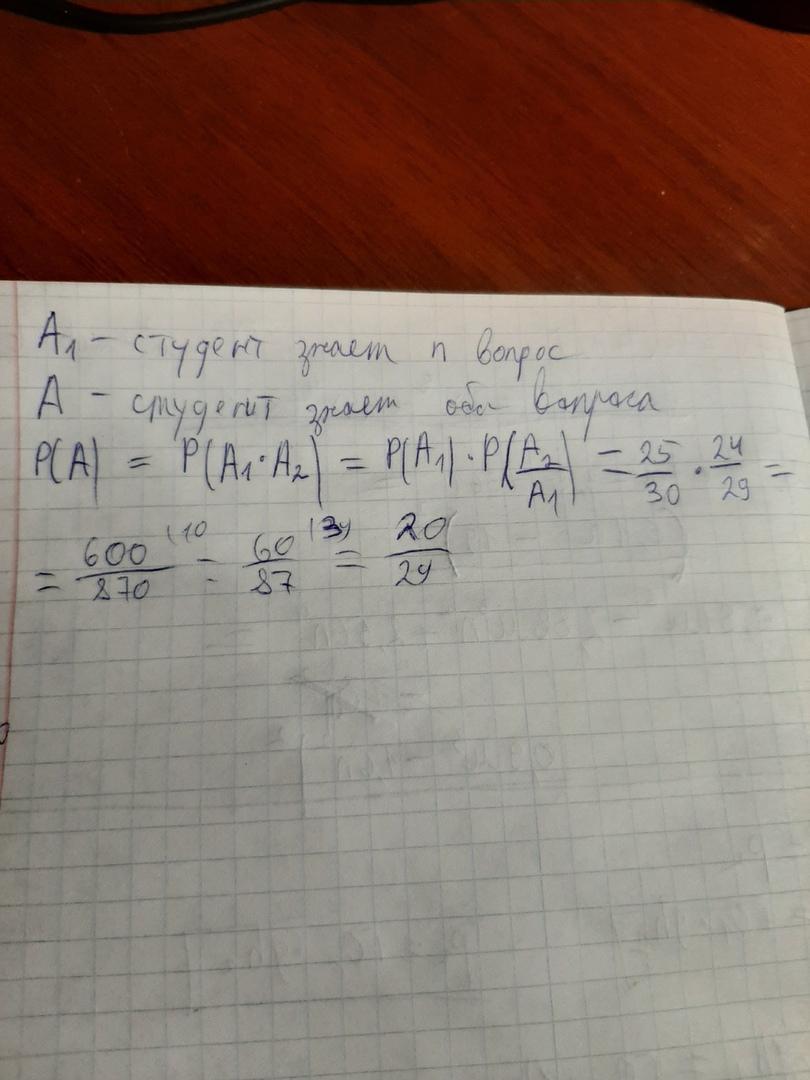 A₁ – студент знает п вопрос
A – студент знает оба вопроса
P(A) = P(A₁·A₂) = P(A₁)·P(A₂/A₁) = 25/30 · 24/29 =
= 600/870 (10 = 60/87 (3) = 20/29